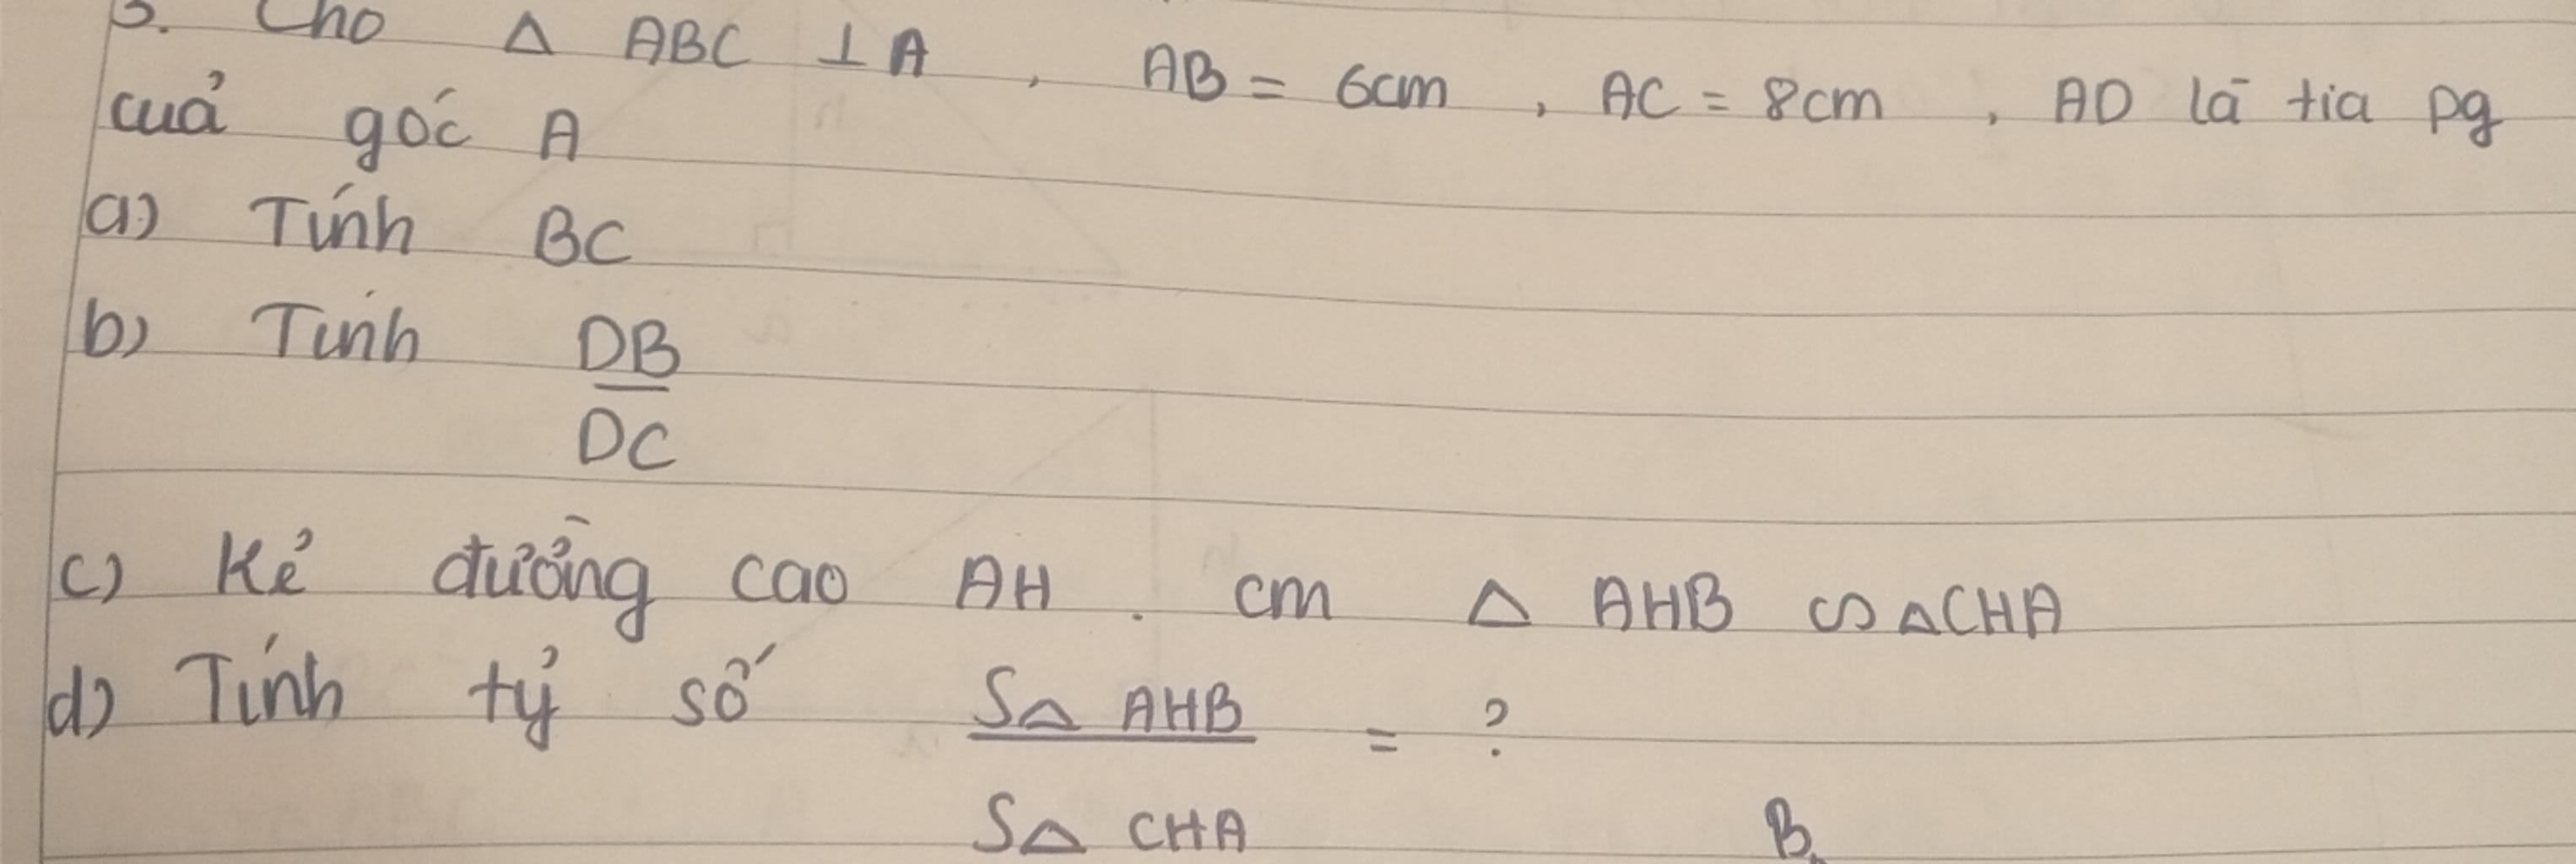 3. Cho Δ ABC ⊥ A, AB = 6cm, AC = 8cm, AD là tia pg
của góc A
a) Tính BC
b) Tính DB
DC
c) Kẻ đường cao AH. cm Δ AHB ∽ ΔCHA
d) Tính tỷ số SΔ AHB = ?
SΔ CHA
B